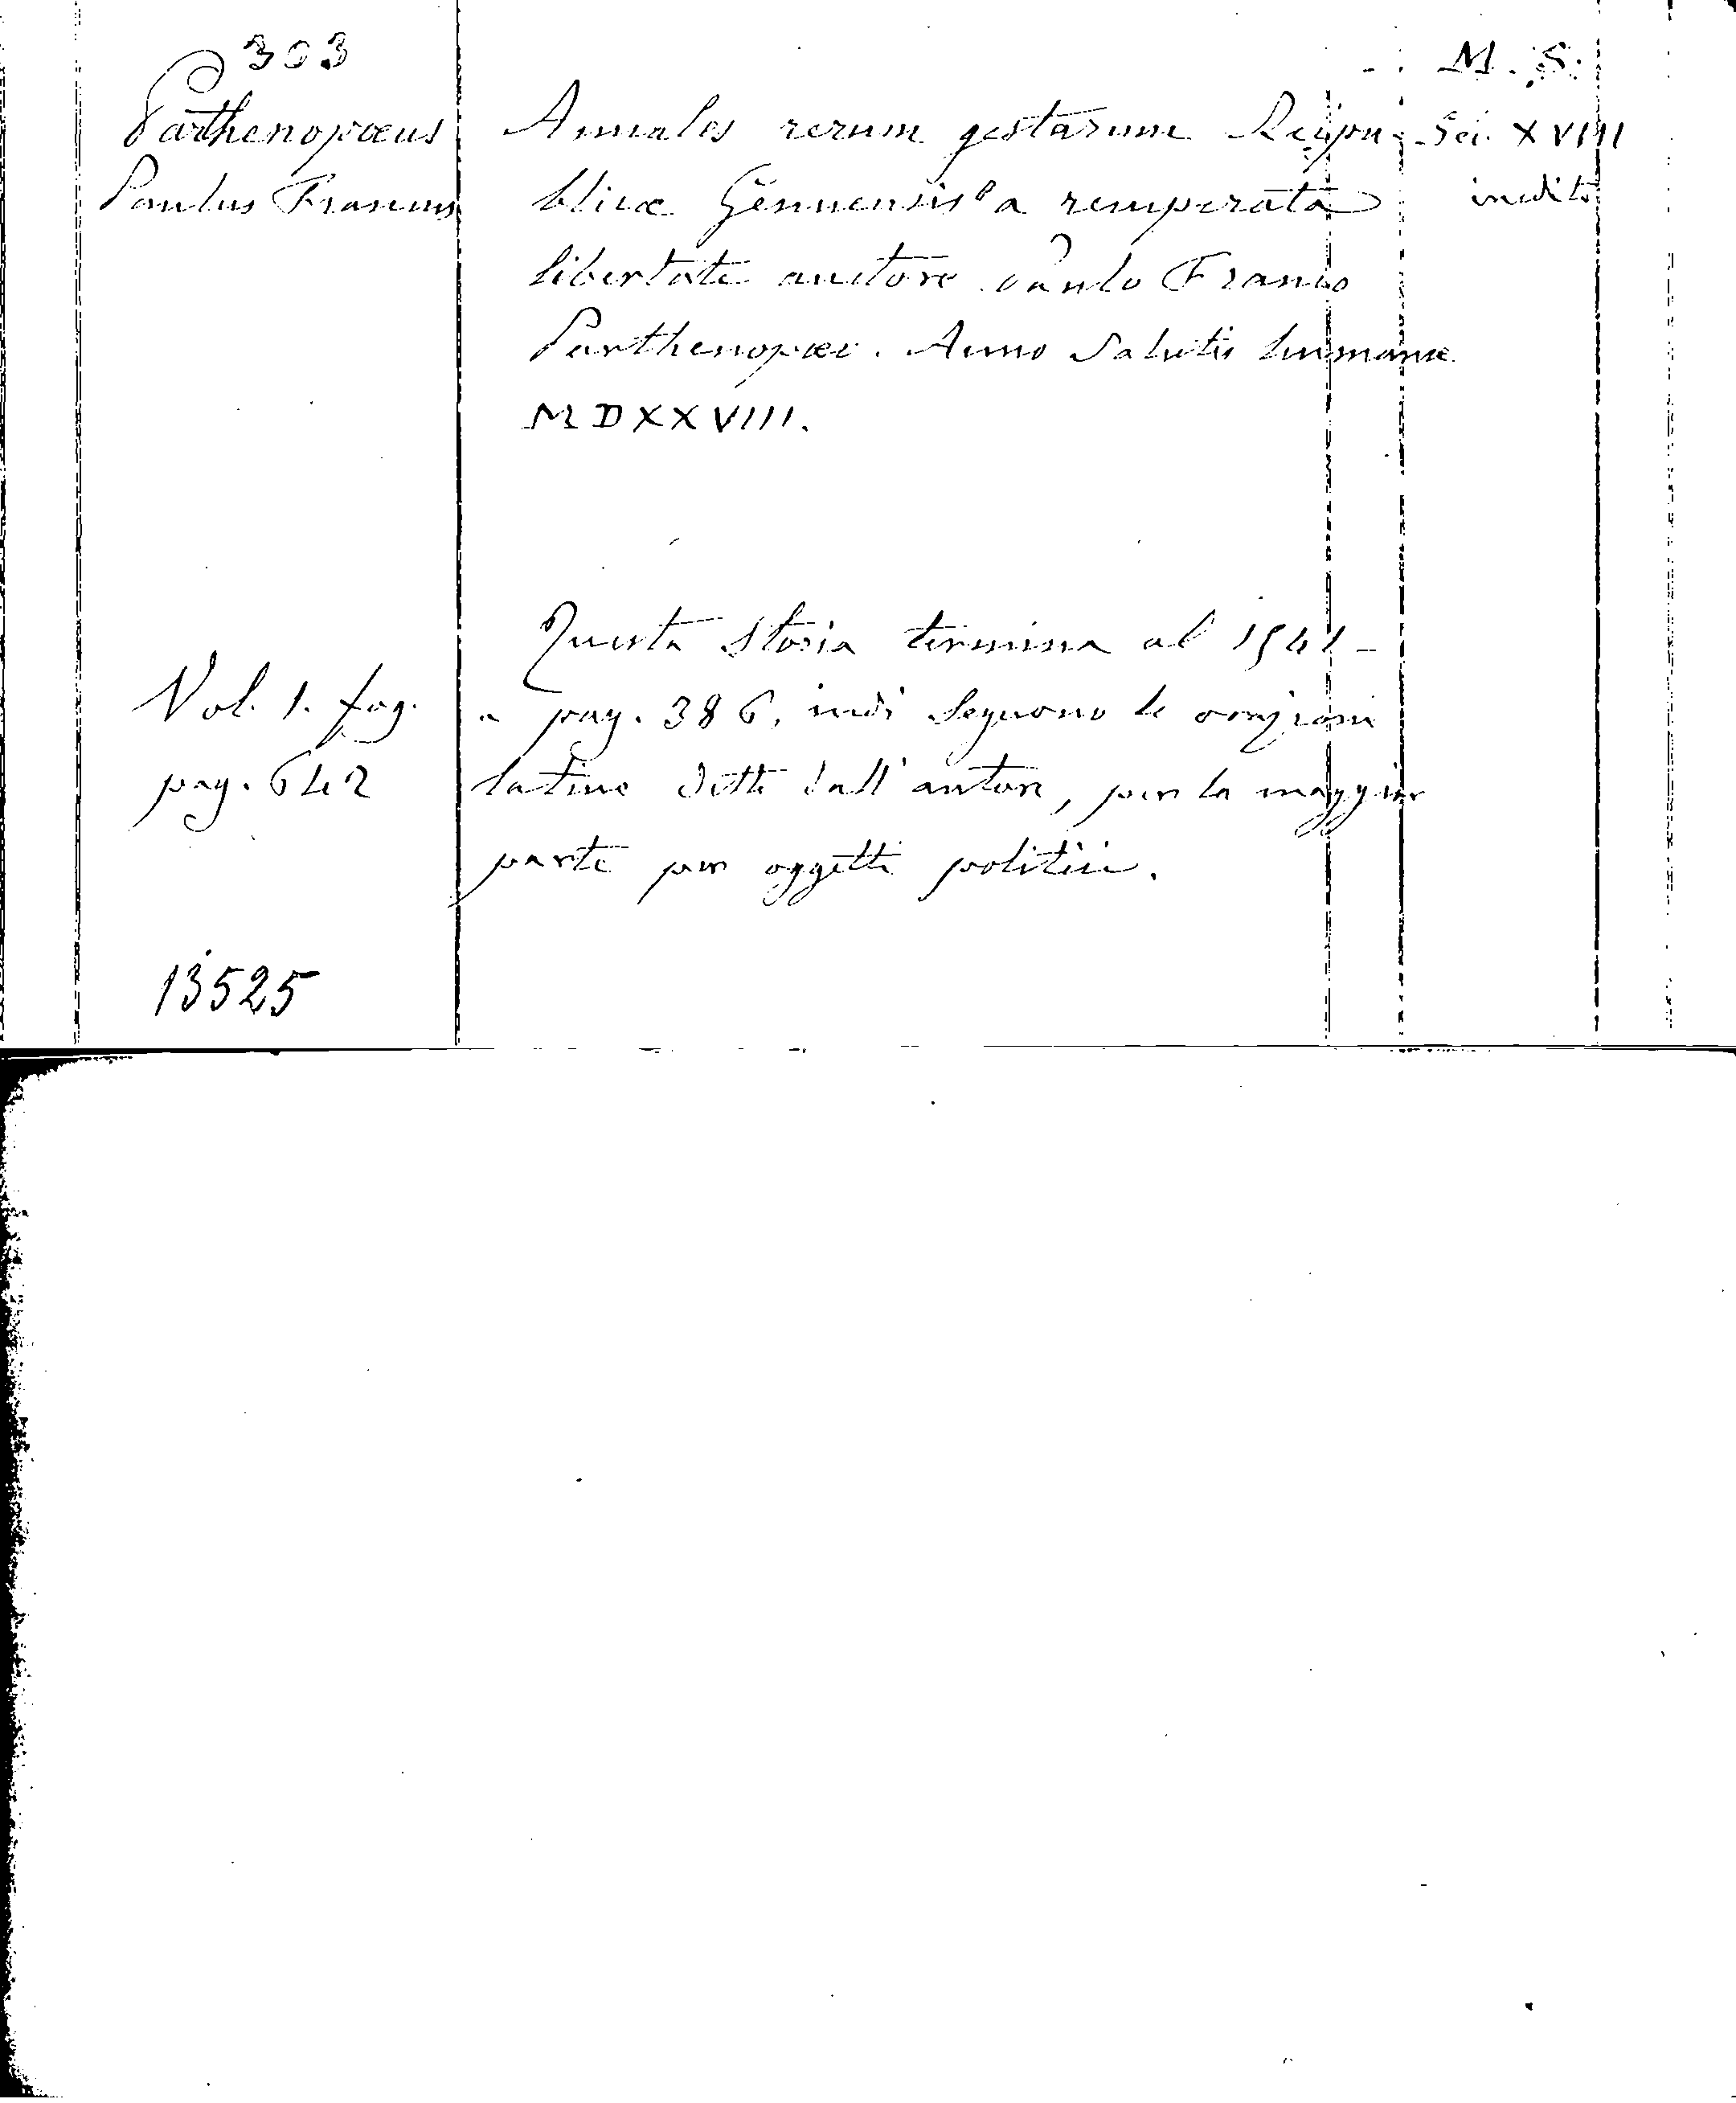 303
Parthenopæus
Paulus Francus
Annales rerum gestarum Reipu-
blicæ Genuensis a recuperata
libertate auctore Paulo Franco
Parthenopæo. Anno salutis humanæ
MDXXVIII.
M. S.
Sec. XVIII
inedito
Questa storia termina al 1541 -
a pag. 386, indi seguono le orazioni
latine dette dall'autore, per la maggior
parte per oggetti politici.
Vol. 1. fog.
pag. 642
13525